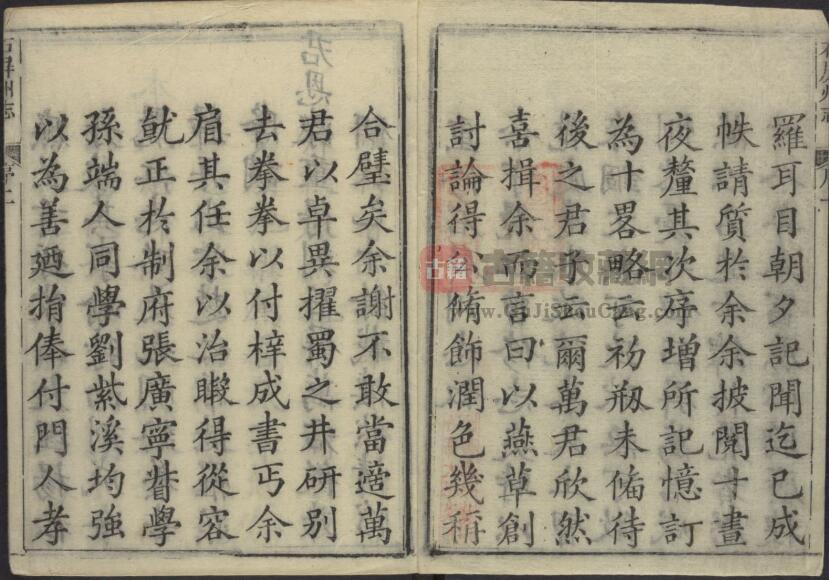 羅耳目朝夕記聞迄已成
帙請質於余余披閱十晝
夜釐其次序增所記憶訂
為十畧略云初剏未俻待
後之君子云爾萬君欣然
喜揖余而言曰以燕草創
討論得公脩飾潤色幾稱
合璧矣余謝不敢當適萬
君以卓異擢蜀之井研别
去拳拳以付梓成書丐余
肩其任余以治暇得從容
就正於制府張廣寧督學
孫端人同學劉紫溪均強
以為善廼捐俸付門人孝
石屏州志
序二
古籍
古籍收藏網
www.GuJiShouCang.com